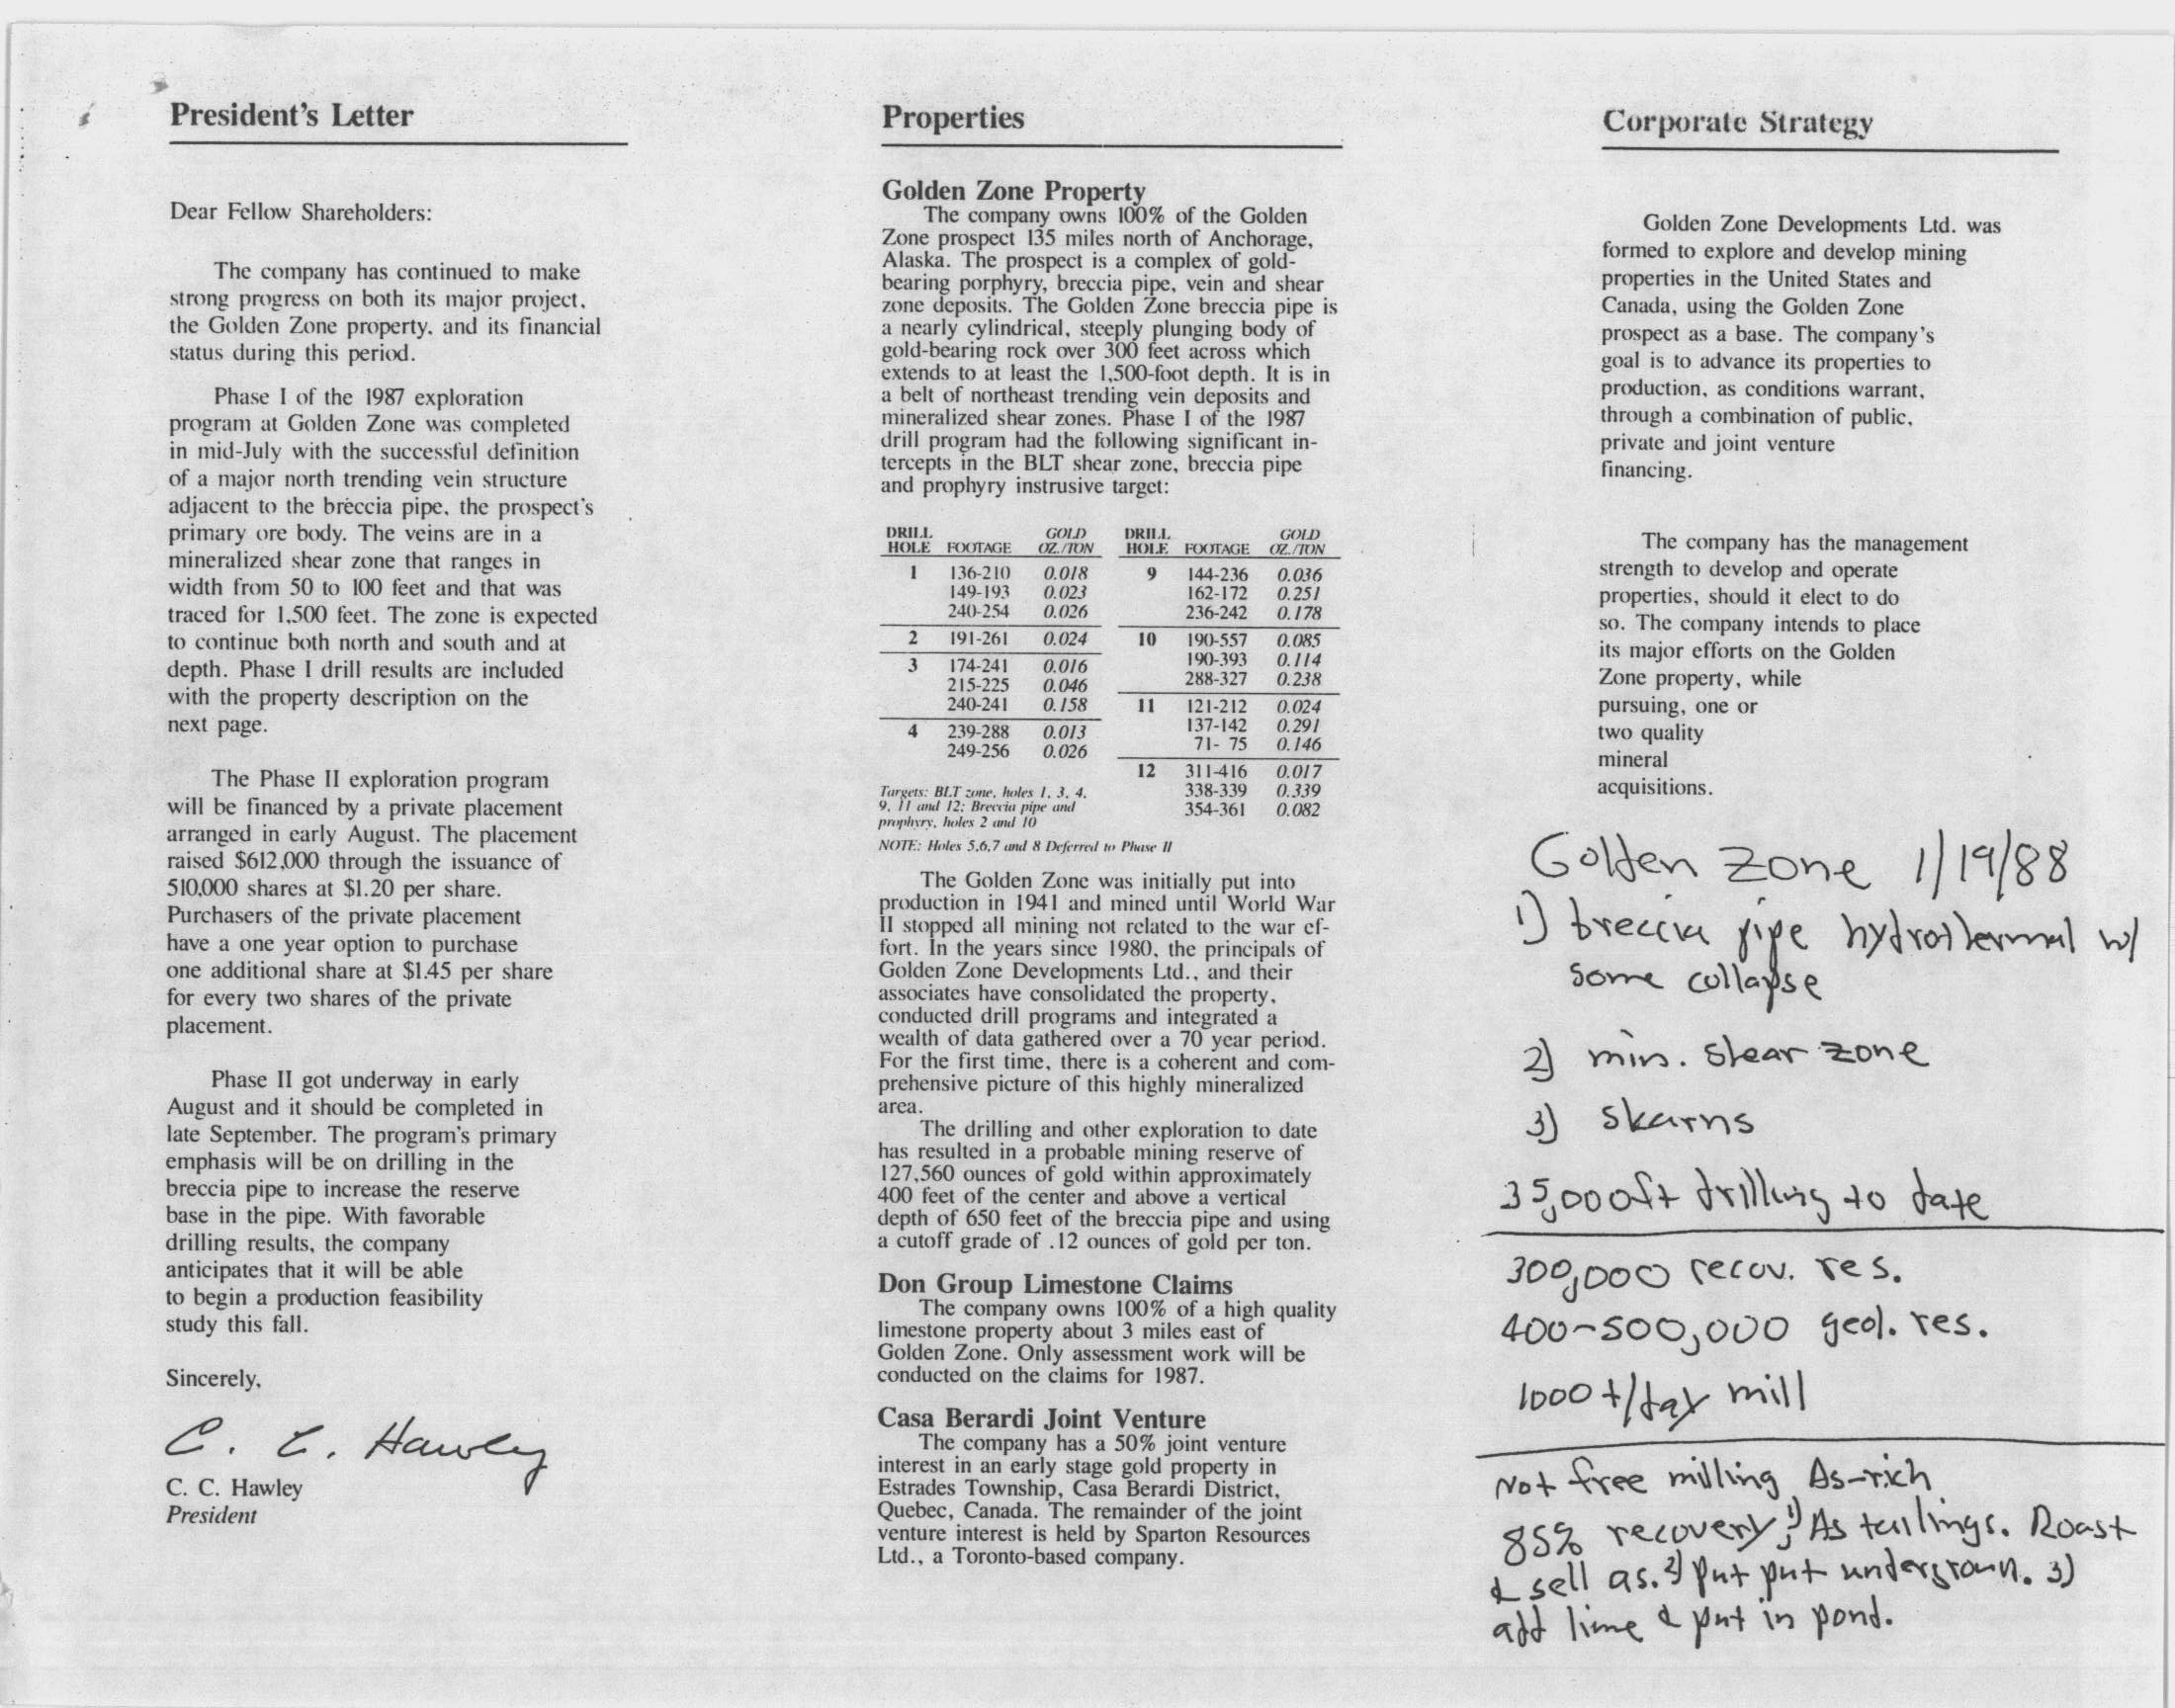 President's Letter
Dear Fellow Shareholders:
The company has continued to make
strong progress on both its major project,
the Golden Zone property, and its financial
status during this period.
Phase I of the 1987 exploration
program at Golden Zone was completed
in mid-July with the successful definition
of a major north trending vein structure
adjacent to the breccia pipe, the prospect's
primary ore body. The veins are in a
mineralized shear zone that ranges in
width from 50 to 100 feet and that was
traced for 1,500 feet. The zone is expected
to continue both north and south and at
depth. Phase I drill results are included
with the property description on the
next page.
The Phase II exploration program
will be financed by a private placement
arranged in early August. The placement
raised $612,000 through the issuance of
510,000 shares at $1.20 per share.
Purchasers of the private placement
have a one year option to purchase
one additional share at $1.45 per share
for every two shares of the private
placement.
Phase II got underway in early
August and it should be completed in
late September. The program's primary
emphasis will be on drilling in the
breccia pipe to increase the reserve
base in the pipe. With favorable
drilling results, the company
anticipates that it will be able
to begin a production feasibility
study this fall.
Sincerely,
C. C. Hawley
C. C. Hawley
President
Properties
Golden Zone Property
The company owns 100% of the Golden
Zone prospect 135 miles north of Anchorage,
Alaska. The prospect is a complex of gold-
bearing porphyry, breccia pipe, vein and shear
zone deposits. The Golden Zone breccia pipe is
a nearly cylindrical, steeply plunging body of
gold-bearing rock over 300 feet across which
extends to at least the 1,500-foot depth. It is in
a belt of northeast trending vein deposits and
mineralized shear zones. Phase I of the 1987
drill program had the following significant in-
tercepts in the BLT shear zone, breccia pipe
and prophyry instrusive target:
DRILL HOLE FOOTAGE GOLD OZ./TON
1 136-210 0.018
149-193 0.023
240-254 0.026
2 191-261 0.024
3 174-241 0.016
215-225 0.046
240-241 0.158
4 239-288 0.013
249-256 0.026
DRILL HOLE FOOTAGE GOLD OZ./TON
9 144-236 0.036
162-172 0.251
236-242 0.178
10 190-557 0.085
190-393 0.114
288-327 0.238
11 121-212 0.024
137-142 0.291
71- 75 0.146
12 311-416 0.017
338-339 0.339
354-361 0.082
Targets: BLT zone, holes 1, 3, 4,
9, 11 and 12; Breccia pipe and
prophyry, holes 2 and 10
NOTE: Holes 5,6,7 and 8 Deferred to Phase II
The Golden Zone was initially put into
production in 1941 and mined until World War
II stopped all mining not related to the war ef-
fort. In the years since 1980, the principals of
Golden Zone Developments Ltd., and their
associates have consolidated the property,
conducted drill programs and integrated a
wealth of data gathered over a 70 year period.
For the first time, there is a coherent and com-
prehensive picture of this highly mineralized
area.
The drilling and other exploration to date
has resulted in a probable mining reserve of
127,560 ounces of gold within approximately
400 feet of the center and above a vertical
depth of 650 feet of the breccia pipe and using
a cutoff grade of .12 ounces of gold per ton.
Don Group Limestone Claims
The company owns 100% of a high quality
limestone property about 3 miles east of
Golden Zone. Only assessment work will be
conducted on the claims for 1987.
Casa Berardi Joint Venture
The company has a 50% joint venture
interest in an early stage gold property in
Estrades Township, Casa Berardi District,
Quebec, Canada. The remainder of the joint
venture interest is held by Sparton Resources
Ltd., a Toronto-based company.
Corporate Strategy
Golden Zone Developments Ltd. was
formed to explore and develop mining
properties in the United States and
Canada, using the Golden Zone
prospect as a base. The company's
goal is to advance its properties to
production, as conditions warrant,
through a combination of public,
private and joint venture
financing.
The company has the management
strength to develop and operate
properties, should it elect to do
so. The company intends to place
its major efforts on the Golden
Zone property, while
pursuing, one or
two quality
mineral
acquisitions.
Golden Zone 1/19/88
1) breccia pipe hydrothermal w/
some collapse
2) min. shear zone
3) skarns
35,000ft drilling to date
300,000 recov. res.
400-500,000 geol. res.
1000 t/day mill
Not free milling, As-rich
85% recovery; 1) As tailings. Roast
& sell as. 2) put put undergroun. 3)
add lime & put in pond.